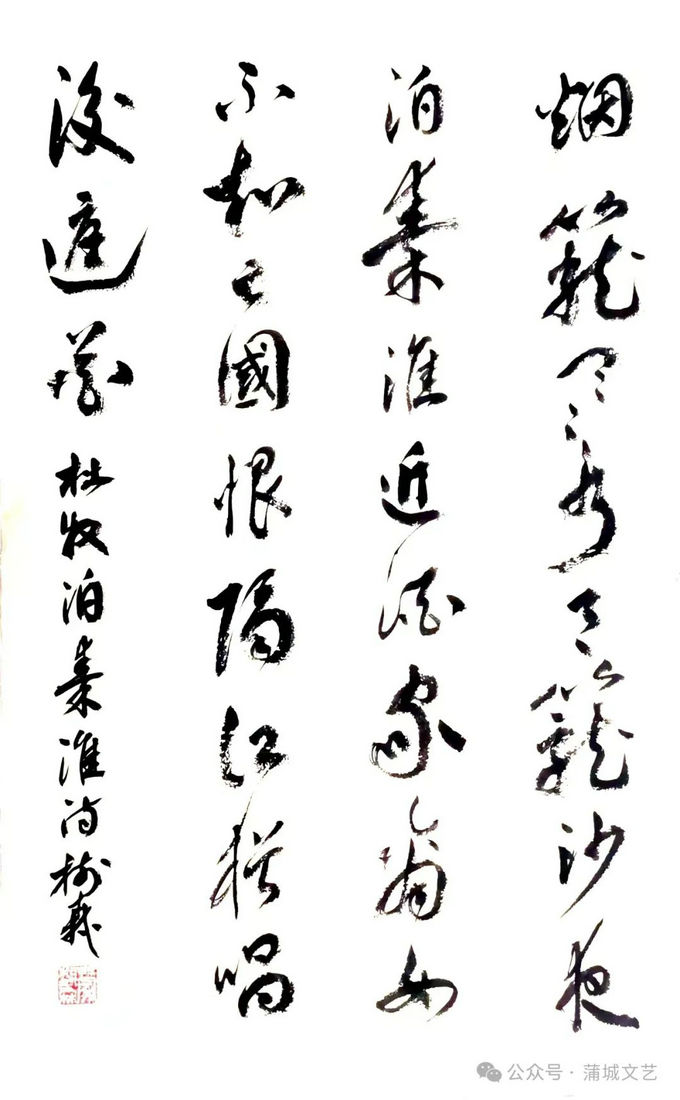 烟籠寒水月籠沙夜
泊秦淮近酒家商女
不知亡國恨隔江猶唱
後庭花
杜牧泊秦淮诗
公众号·蒲城文艺